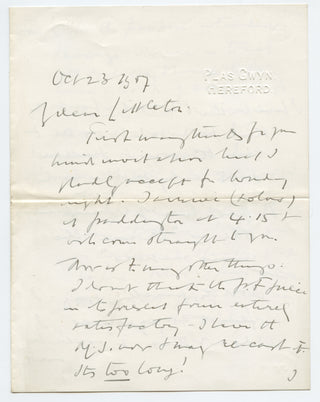 PLAS GWYN,
HEREFORD.
Oct 23 1907
My dear Littleton:
First many thanks for your
kind invitation which I
gladly accept for Monday
night. I arrive (
at Paddington at 4.15 &
will come straight to you.
Now as to many other things:
I don't think the p. f. piece
in its present form entirely
satisfactory – I have it
M.S. now & may re-cast it.
Its too long!